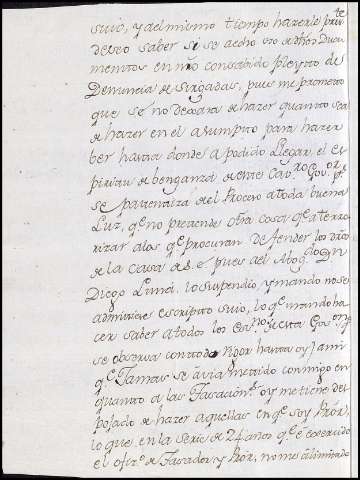 suio, y al mismo tiempo hazerle pres.te
deseo saber se se a echo vso de dhos Docu
mentos en nro consabido pleyto de
Denuncia de Sisgadas, pues mi prometo
que se no dexara de hazer quanto sea
de hazer en el asumpto para hazer
ber hasta donde a podido llegar el es
piritu de benganza de este Cav.ro Gov.or pr.
se patentiza del Proceso a toda buena
Luz, q.e no pretende otra cosa q.e aterro
rizar a los q.e procuran defender los dros
de la Casa de V. e. pues al Abog.do Dn
Diego Luna lo suspendio, y mando no se
admitiese escripto suio, lo q.e mando ha
cer saber a todos los Es.nos de esta Gov.on y
se obserua con todo Rigor hasta oy, y a mi
q.e Jamas se avia metido conmigo en
quanto a las Tasacion.s oy me tiene des
pojado de hazer aquellas en q.e soy Prór,
lo que en la serie de 24 años q.e é exercido
el ofiz.o de Tasador y Prór, no me a limitado